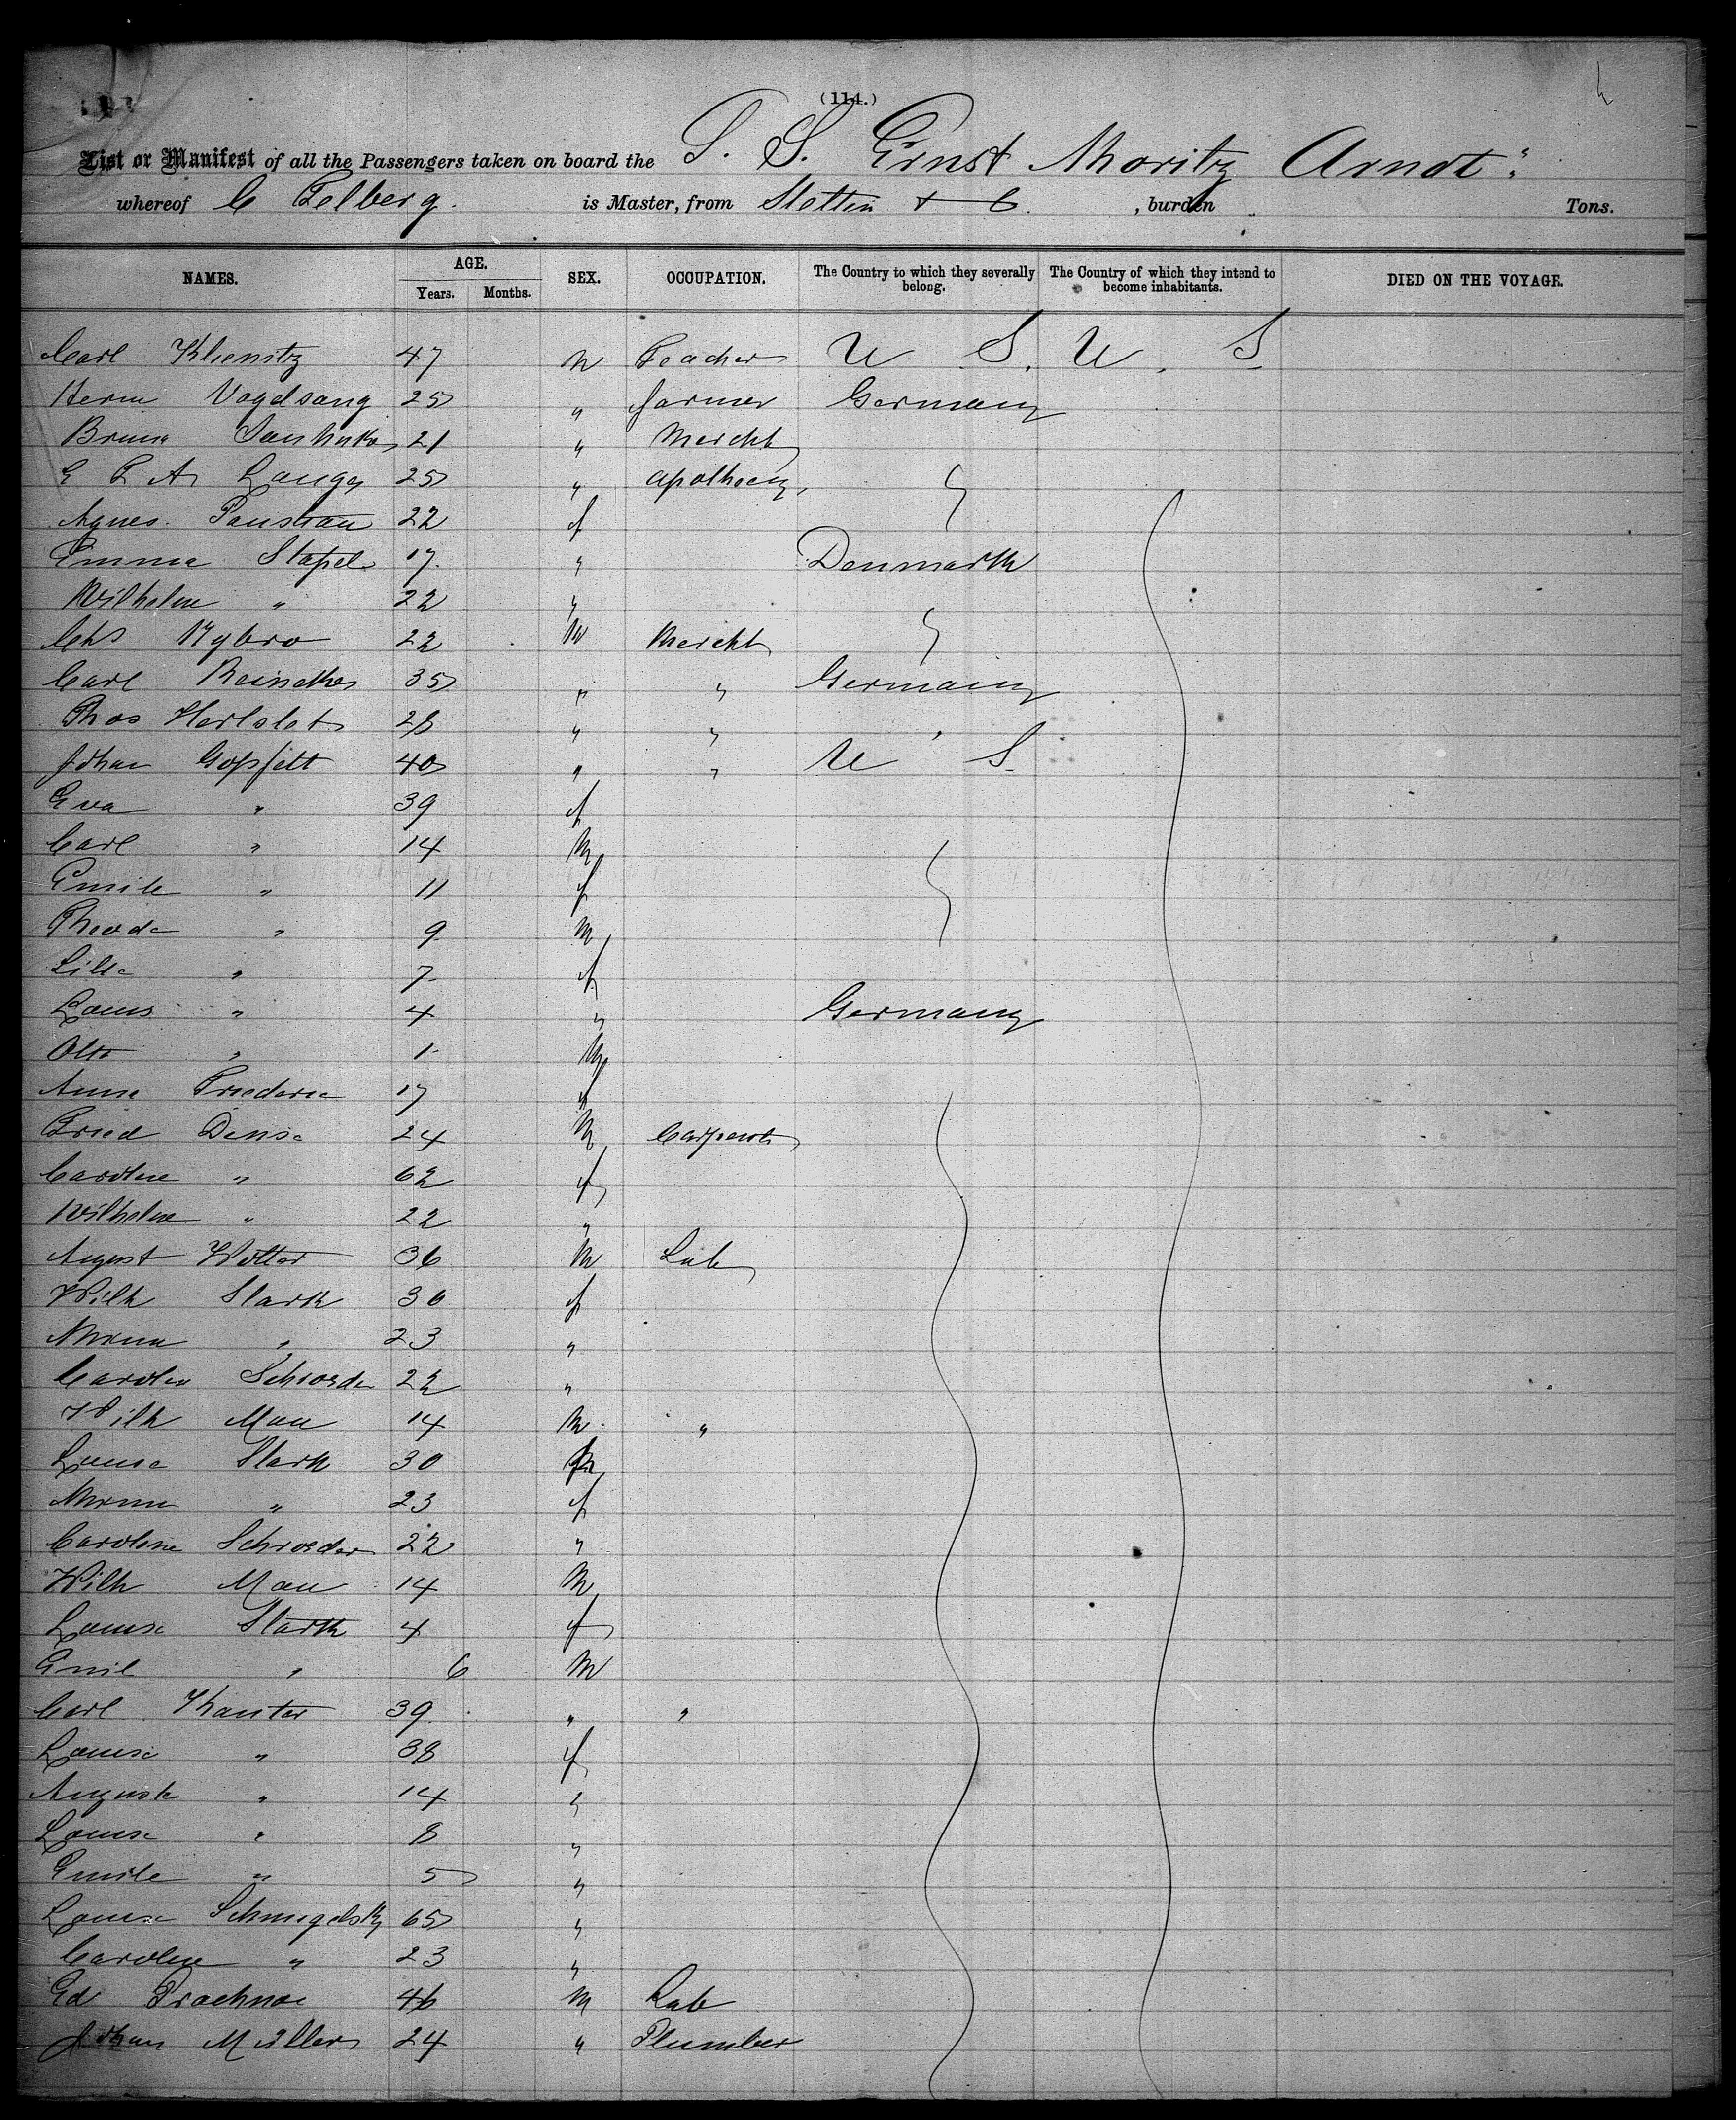 (114.)
List or Manifest of all the Passengers taken on board the S. S. Ernst Moritz Arndt"
whereof C Felberg. is Master, from Stettin + C. , burden „ Tons.
NAMES. AGE. SEX. OCCUPATION. The Country to which they severally belong. The Country of which they intend to become inhabitants. DIED ON THE VOYAGE.
Years. Months.
Carl Klienitz 47 M Teacher U S. U. S
Herm Vogelsang 25 " farmer Germany
Bruno 21 " Mercht
E F A Lange 25 " apothecy,
Agnes. Paustian 22 f
Emma Stapel 17. " Denmark
Wilhelm " 22 "
Chs Nybro 22 M Mercht
Carl Reinecke 35 " " Germany
Thos Hertslet 28 " "
Johan Gopfelt 40 " " U S
Eva " 39 f
Carl " 14 M
Emile " 11 f
Theode " 9 M
Lille " 7 f
Louis " 4 " Germany
Otto " 1 M
Anna Friederie 17 f
Fried Dense 24 M Carpent
Caroline " 62 f
Wilhelm " 22 "
August Wolter 36 M Lab
Wilh Stark 30 f
Minna " 23 "
Carolin Schroeder 22 "
Wilh Mau 14 M "
Louise Stark 30
Minna " 23 f
Caroline Schroeder 22 "
Wilh Mau 14 M
Louise Stark 4 f
Emil " 6 M
Carl Kanter 39 " "
Louise " 38 f
Auguste " 14 "
Louise " 8 "
Emile " 5 "
Louise Schmigelsky 65 "
Caroline " 23 "
Ed Prochnoe 46 M Lab
Johan Müller 24 " Plumber